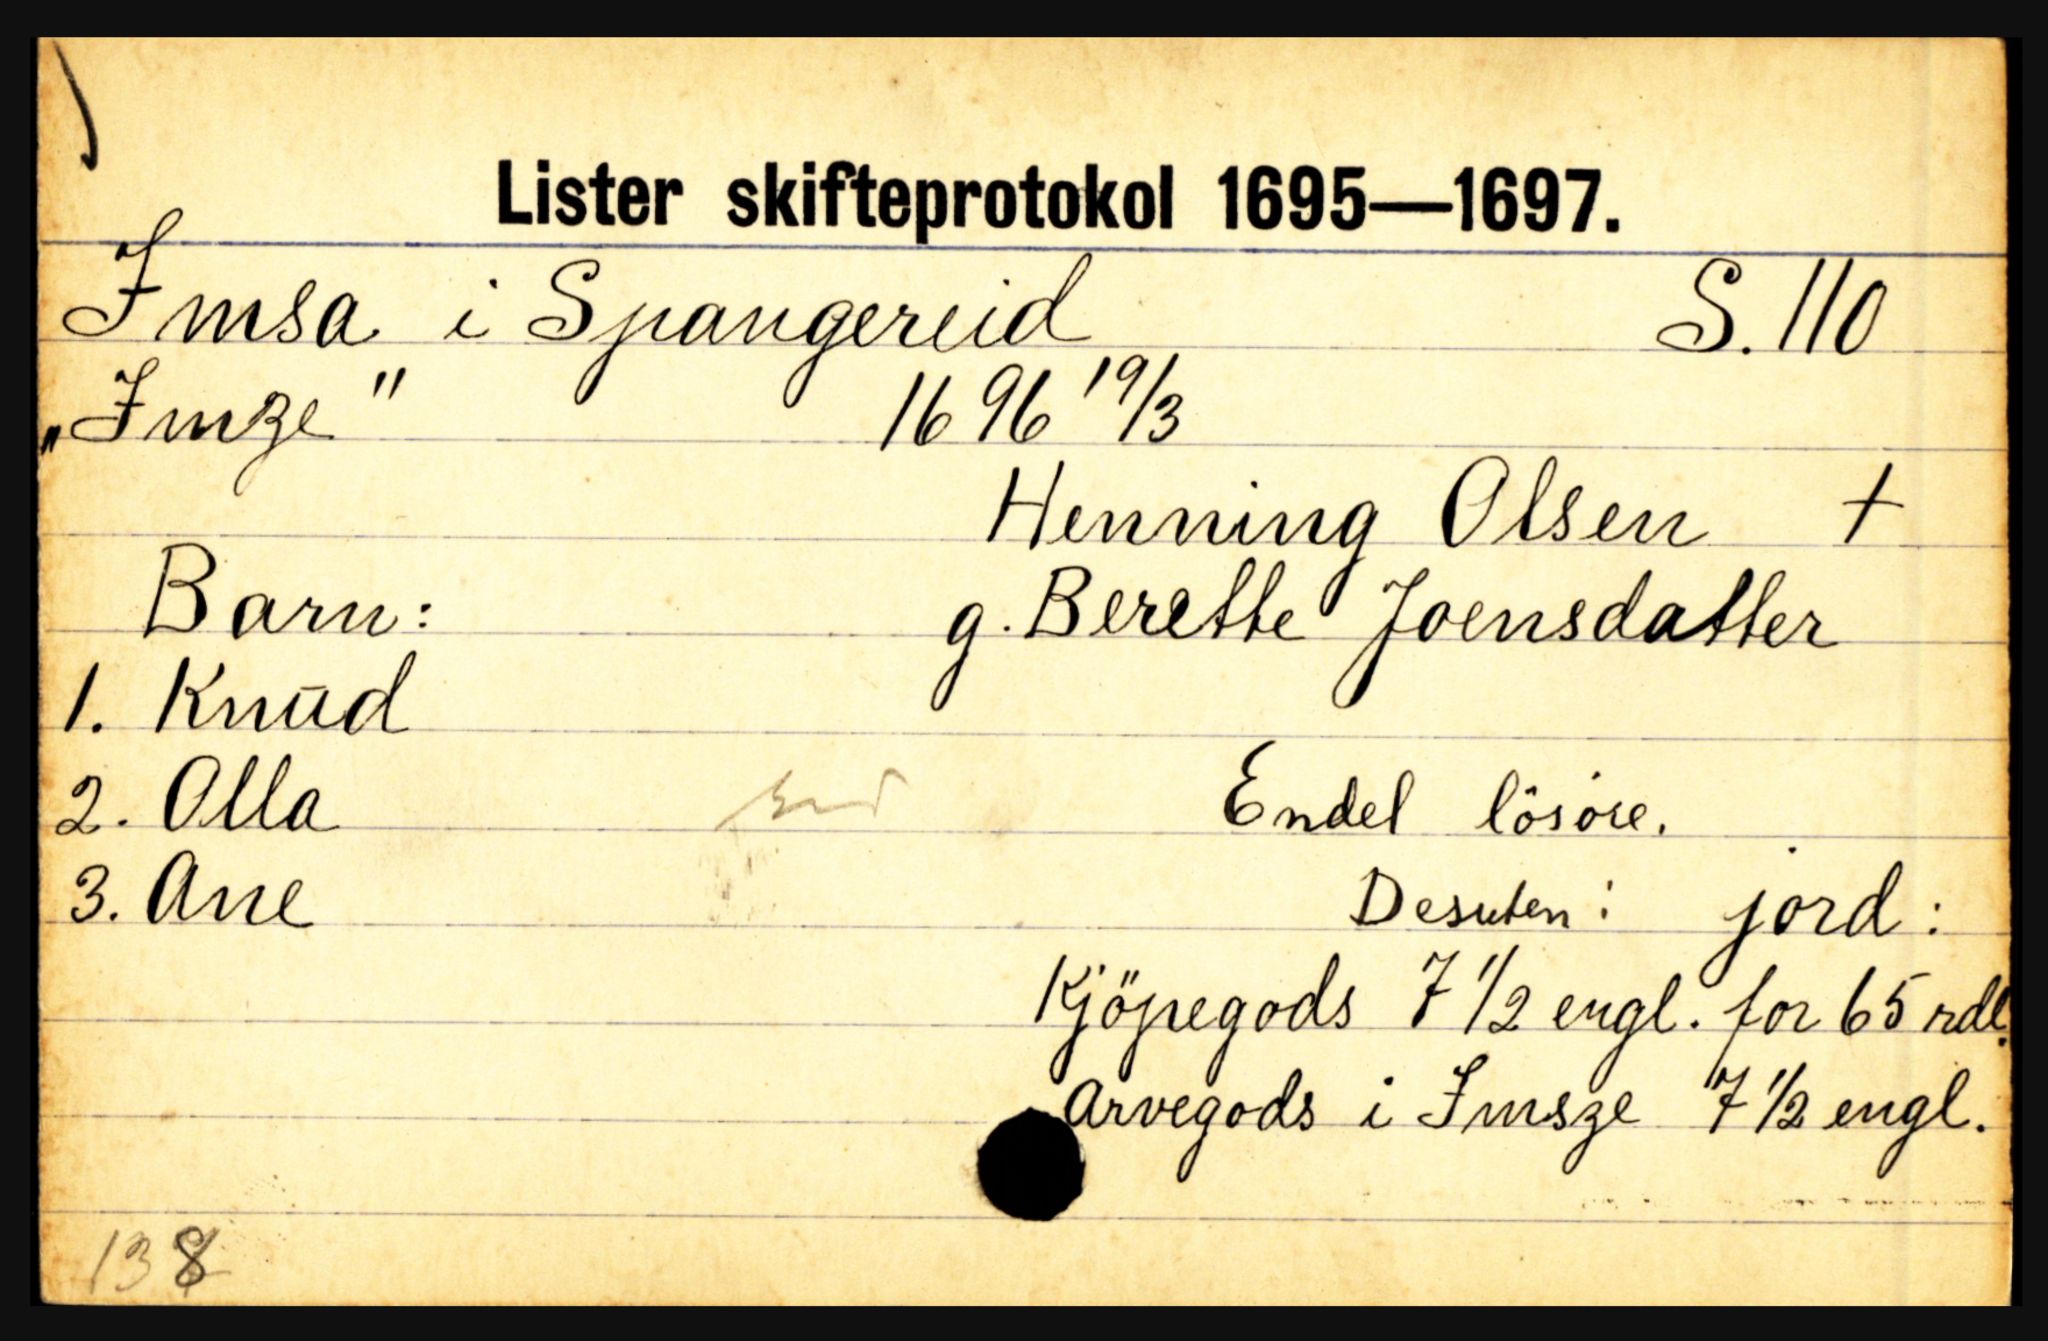 Lister skifteprotokol 1695—1697.
Imsa i Spangereid S. 110
„Imze" 1696 19/3
Henning Olsen †
Barn: g. Berette Joensdatter
1. Knūd
2. Olla Endel lösöre.
3. Ane Desuten: jord:
Kjöpegods 7 1/2 engl. for 65 rdl.
Arvegods i Imsze 7 1/2 engl.
138